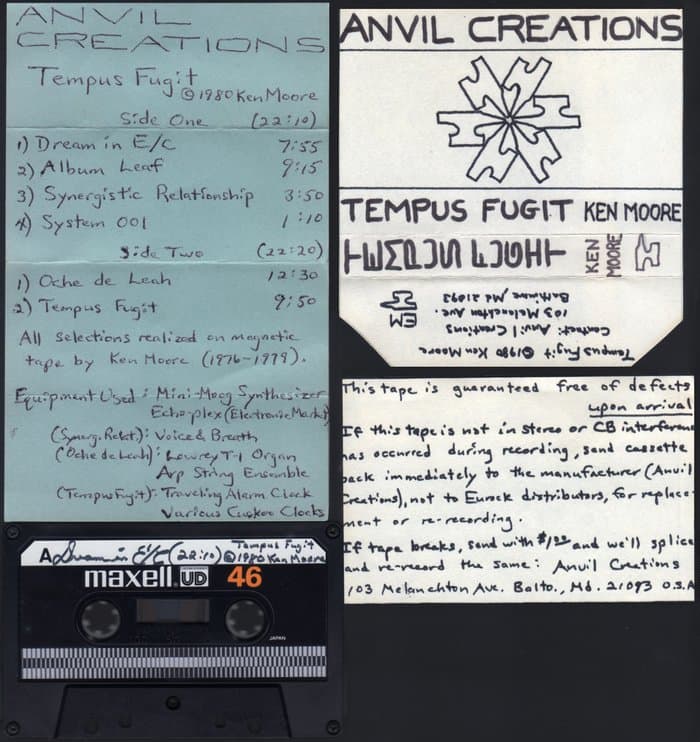 ANVIL
CREATIONS
Tempus Fugit
©1980 Ken Moore
Side One (22:10)
1) Dream in E/C 7:55
2) Album Leaf 9:15
3) Synergistic Relationship 3:50
4) System 001 1:10
Side Two (22:20)
1) Oche de Leah 12:30
2) Tempus Fugit 9:50
All selections realized on magnetic
tape by Ken Moore (1976-1979).
Equipment Used: Mini-Moog Synthesizer
Echo-plex (Electronic Marks)
(Synerg. Relat.): Voice & Breath
(Oche de Leah): Lowrey T-1 Organ
Arp String Ensemble
(Tempus Fugit): Traveling Alarm Clock
Various Cuckoo Clocks
ANVIL CREATIONS
TEMPUS FUGIT KEN MOORE
TEMPUS FUGIT KEN MOORE
EM
Tempus Fugit ©1980 Ken Moore
Contact: Anvil Creations
103 Melanchton Ave.
Baltimore, Md 21093
This tape is guaranteed free of defects
upon arrival
If this tape is not in stereo or CB interference
has occurred during recording, send cassette
back immediately to the manufacturer (Anvil
Creations), not to Eurock distributors, for replace
ment or re-recording.
If tape breaks, send with $1.00 and we'll splice
and re-record the same: Anvil Creations
103 Melanchton Ave. Balto., Md. 21093 U.S.A
A Dream in E/C (22:10) Tempus Fugit
©1980 Ken Moore
maxell UD 46
JAPAN